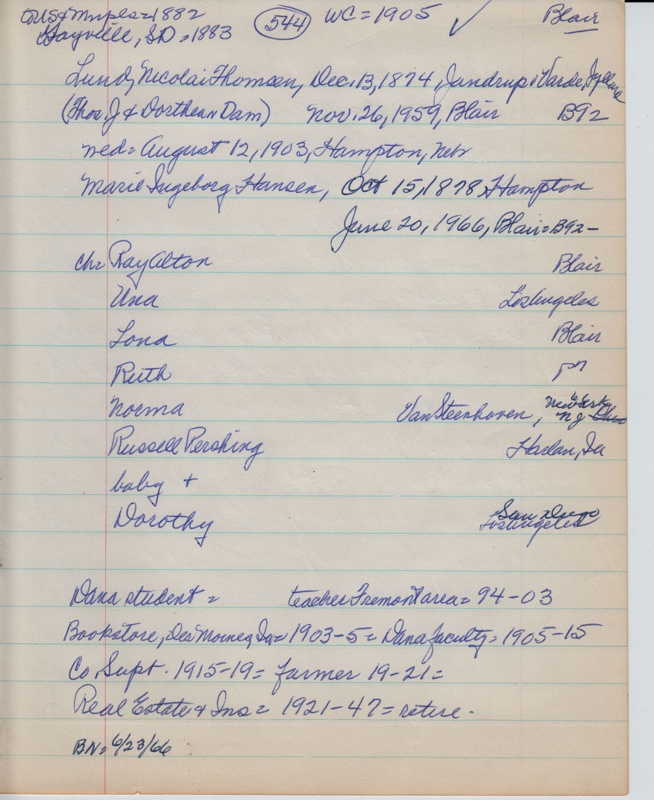 Gayville, SD = 1883 544 WC = 1905 Blair
Lund, Nicolai Thomsen, Dec. 13, 1874, Jandrup, Varde,
(Thos. J & Dorthea N Dam) Nov. 26, 1959, Blair B92
med = August 12, 1903, Hampton, Nebr
Marie Ingeborg Hansen, Oct 15, 1878, Hampton
June 20, 1966, Blair = B92 -
ch = Ray Alton Blair
Una Los Angeles
Lona Blair
Ruth "
Norma Van Steenhoven, N.J. Ohio
Russell Pershing Harlan, Ia
baby +
Dorothy San Diego
Los Angeles
Dana student = teacher Fremont area = 94-03
Bookstore, Des Moines, Ia = 1903-5 = Dana faculty = 1905-15
Co Supt. 1915-19 = farmer 19-21 =
Real Estate & Ins = 1921-47 = retire.
BN = 6/23/66